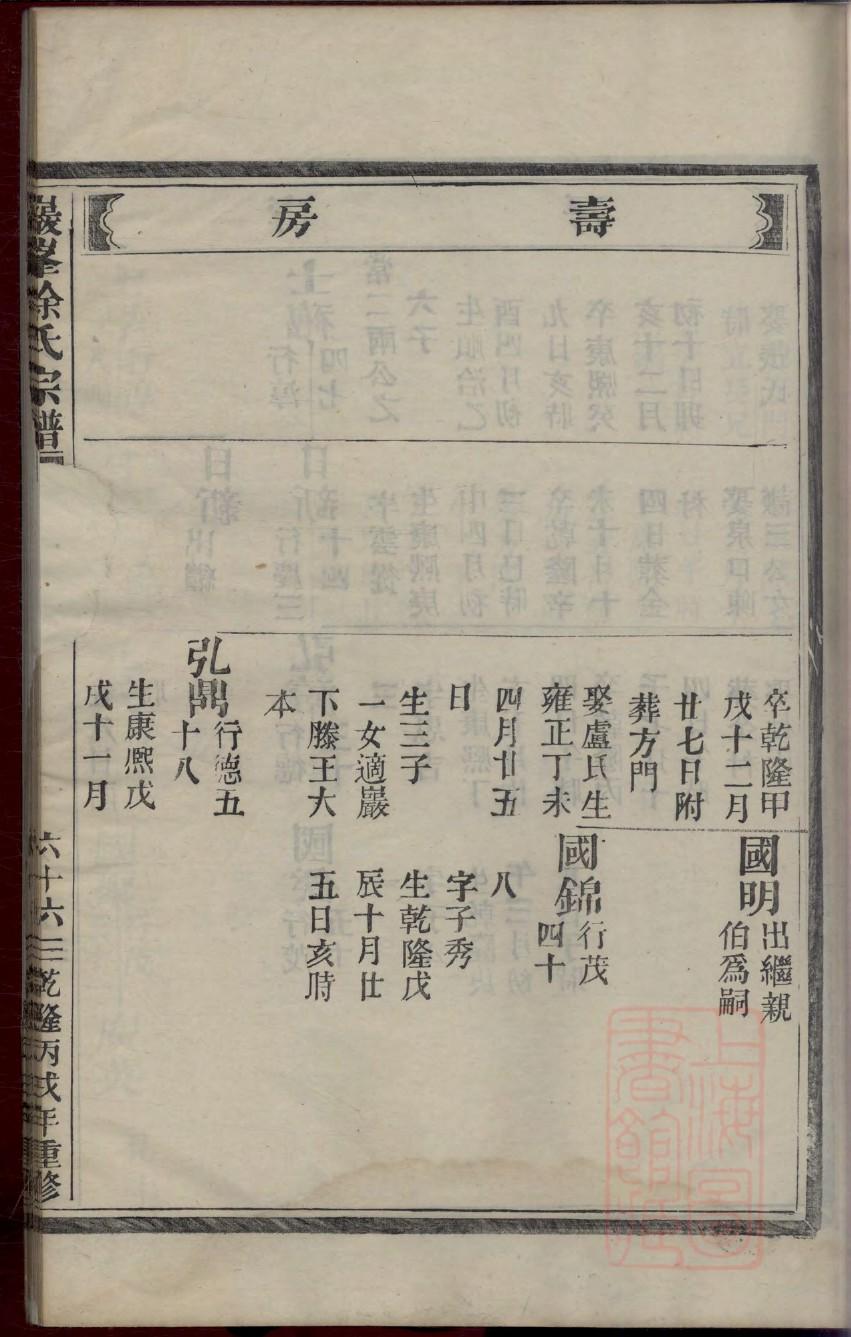 壽房
卒乾隆甲
戌十二月
廿七日附
葬方門
娶盧氏生
雍正丁未
四月廿五
日
生三子
一女適巖
下滕王大
本
弘鼎行德五
十八
生康熙戊
戌十一月
國明出繼親
伯爲嗣
國錦行茂
四十
八
字子秀
生乾隆戊
辰十月廿
五日亥時
巖峯徐氏宗譜
六十六
乾隆丙戌年重修
上海圖書館藏